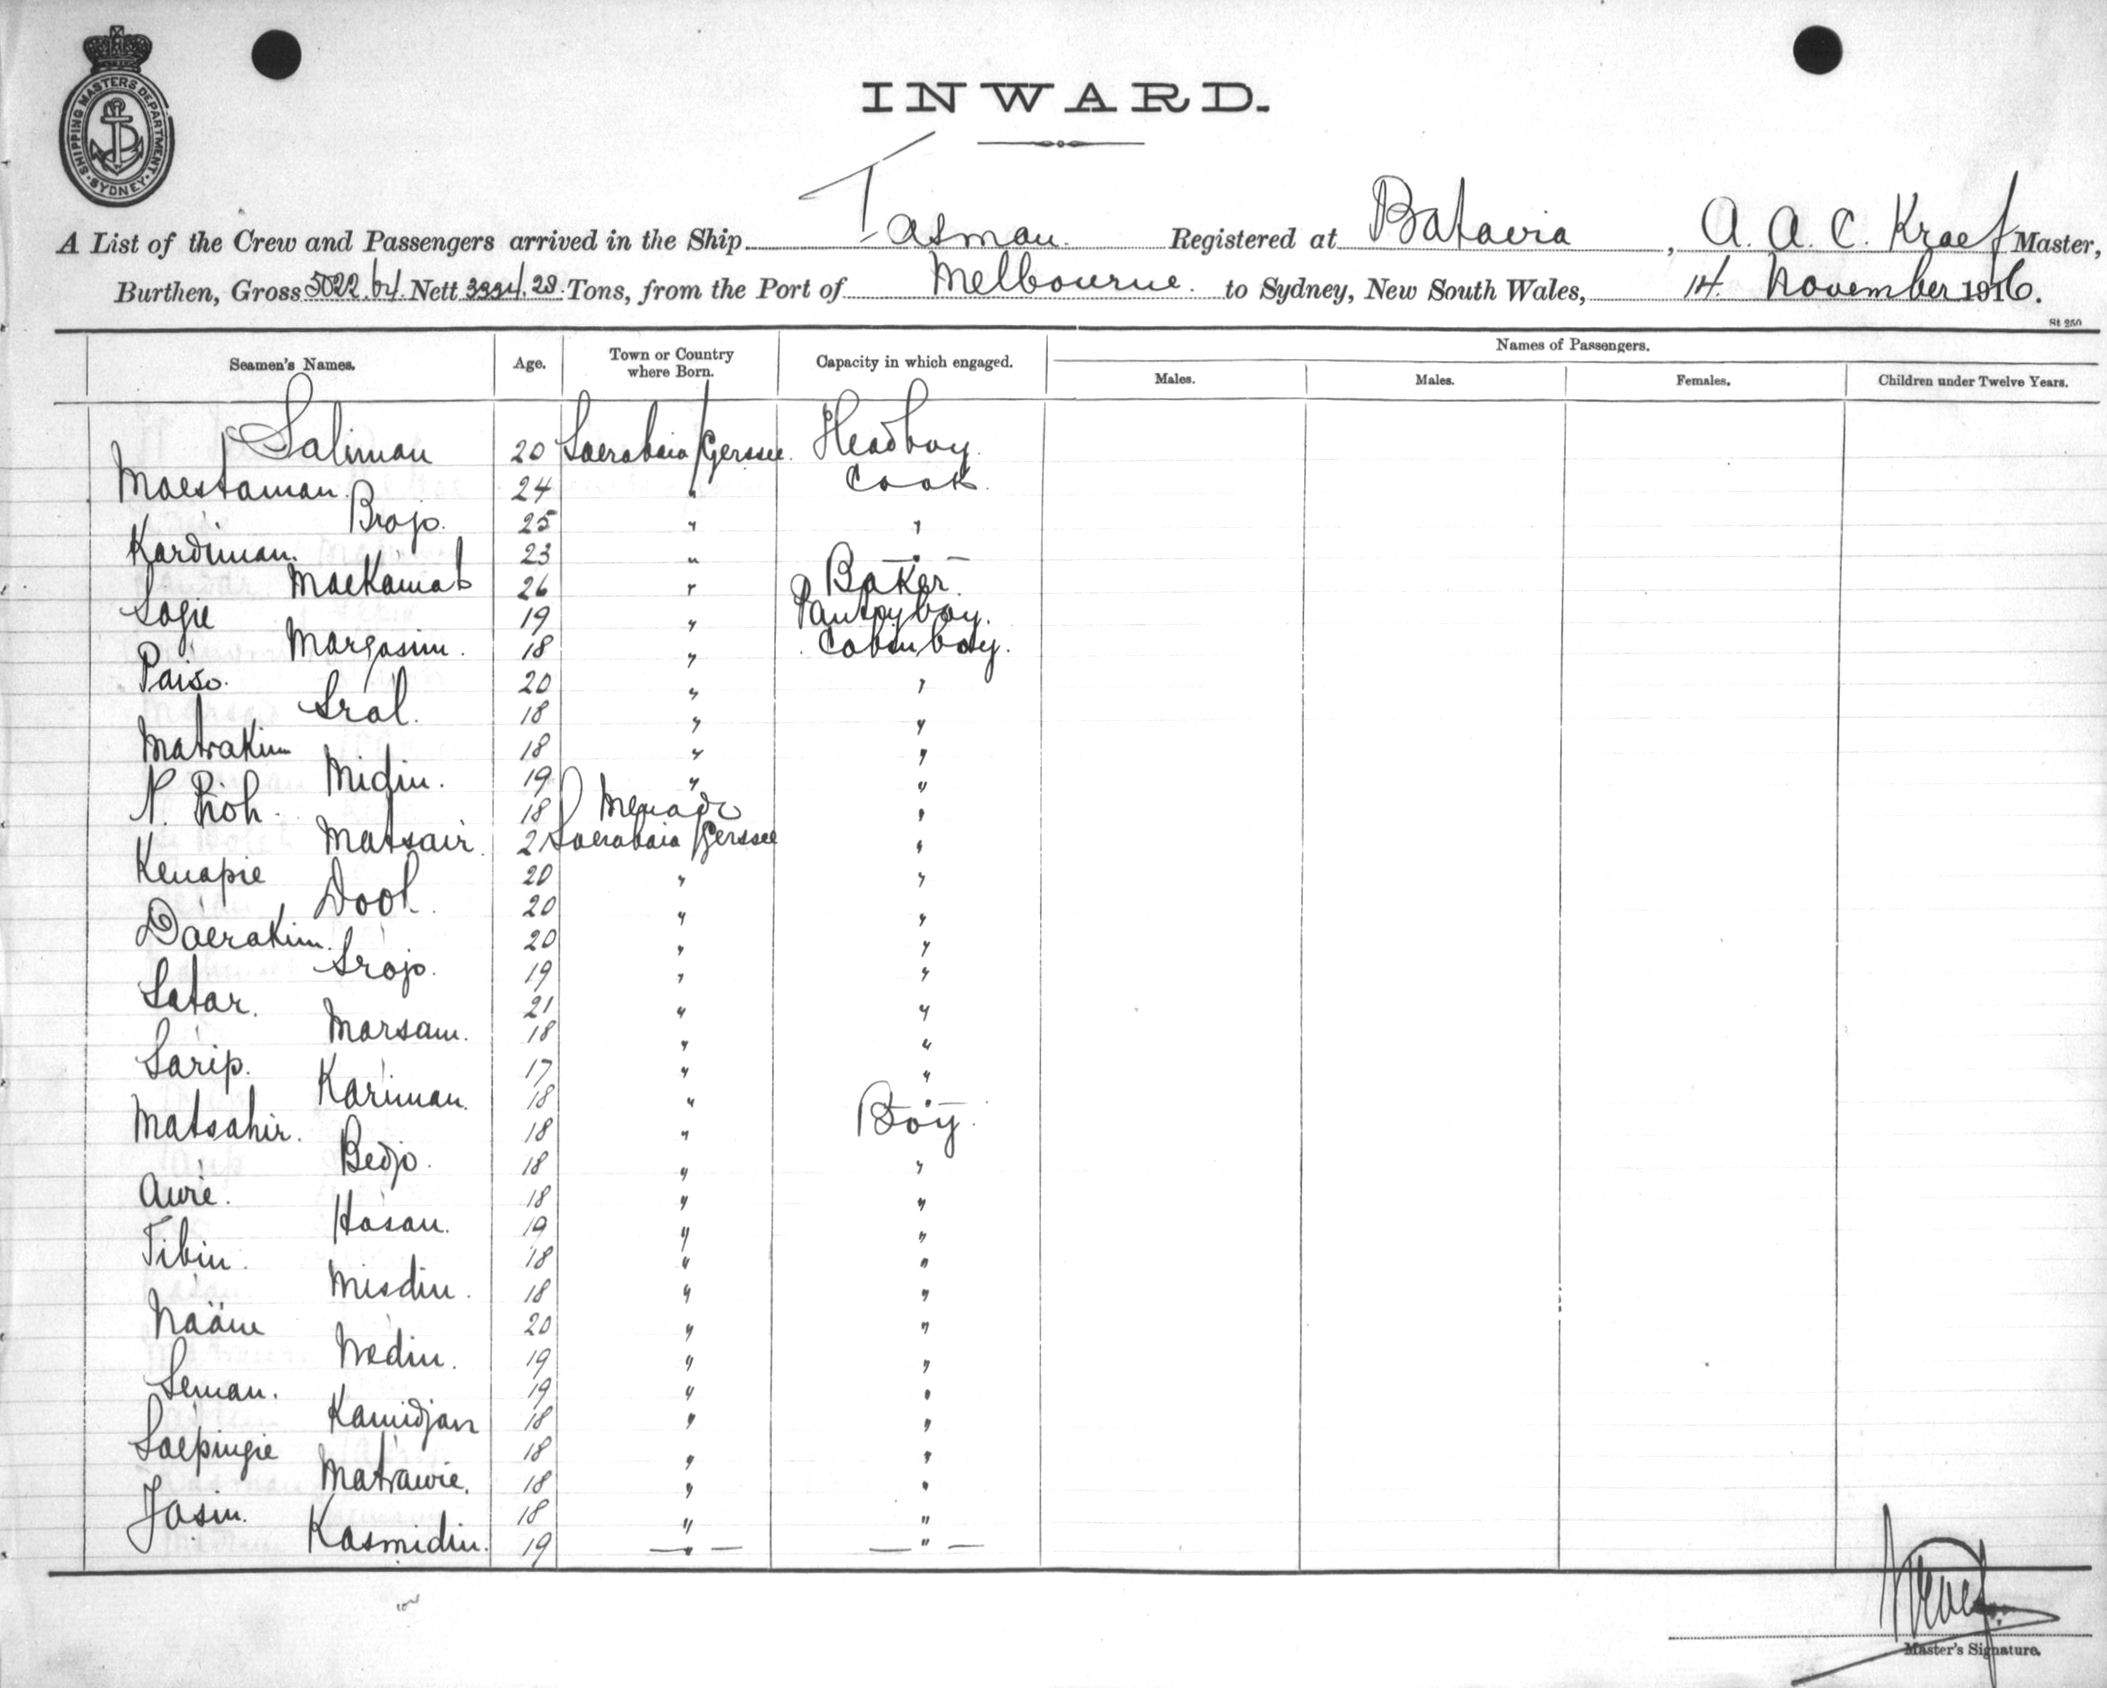 SHIPPING MASTERS DEPARTMENT SYDNEY
INWARD.
A List of the Crew and Passengers arrived in the Ship Tasman. Registered at Batavia, A. A. C. Kraef Master,
Burthen, Gross 5022.64 Nett Tons, from the Port of Melbourne. to Sydney, New South Wales, 14. November 1916.
St 250
Seamen's Names. Age. Town or Country where Born. Capacity in which engaged. Names of Passengers.
Males. Males. Females. Children under Twelve Years.
Saliman 20 Soerabaia/Gerssee. Headboy.
Moestaman. 24 " Cook.
Brojo. 25 " "
Kardiman. 23 " — " —
Maekamat 26 " Baker.
Sagie 19 " Pantryboy.
Margasim. 18 " Cabinboy.
Paiso. 20 " "
Sral. 18 " "
Matrakim 18 " "
Midin. 19 " "
N. Pioh. 18 Menado "
Matsair. 21 Soerabaia/Gerssee "
Kenapie 20 " "
Dool. 20 " "
Daerakim. 20 " "
Srojo. 19 " "
Satar. 21 " "
Marsam. 18 " "
Sarip. 17 " "
Kariman. 18 " — " —
Matsahir. 18 " Boy.
Bedjo. 18 " "
Awie. 18 " "
Hasan. 19 " "
Tibin. 18 " "
Misdin. 18 " "
Nääm 20 " "
Nedin. 19 " "
Seman. 19 " "
Kamidjan 18 " "
Saepingie 18 " "
Matrawie. 18 " "
Jasin. 18 " "
Kasmidin. 19 — " — — " —
Master's Signature.